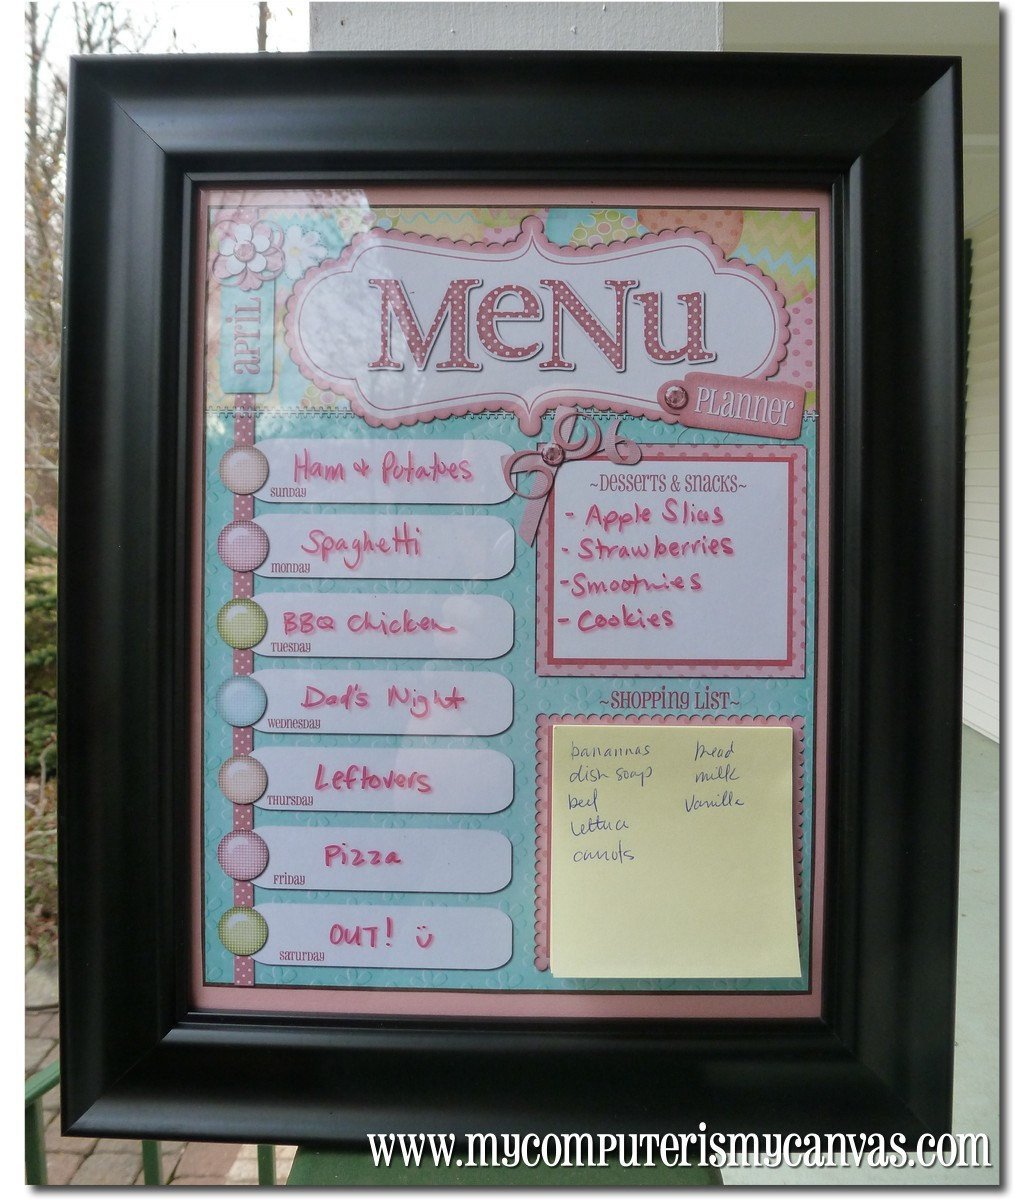 APRIL
MeNu
PLanner
Ham & Potatoes
SUNDAY
Spaghetti
MONDAY
BBQ Chicken
TUESDAY
Dad's Night
WEDNESDAY
Leftovers
THURSDAY
Pizza
FRIDAY
OUT!
SATURDAY
~Desserts & Snacks~
- Apple Slices
- Strawberries
- Smoothies
- Cookies
~Shopping List~
banannas bread
dish soap milk
beef vanilla
lettuce
carrots
www.mycomputerismycanvas.com